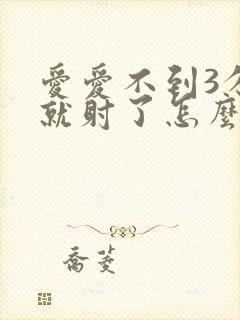 愛愛不到3分
就射了怎麼
喬菱